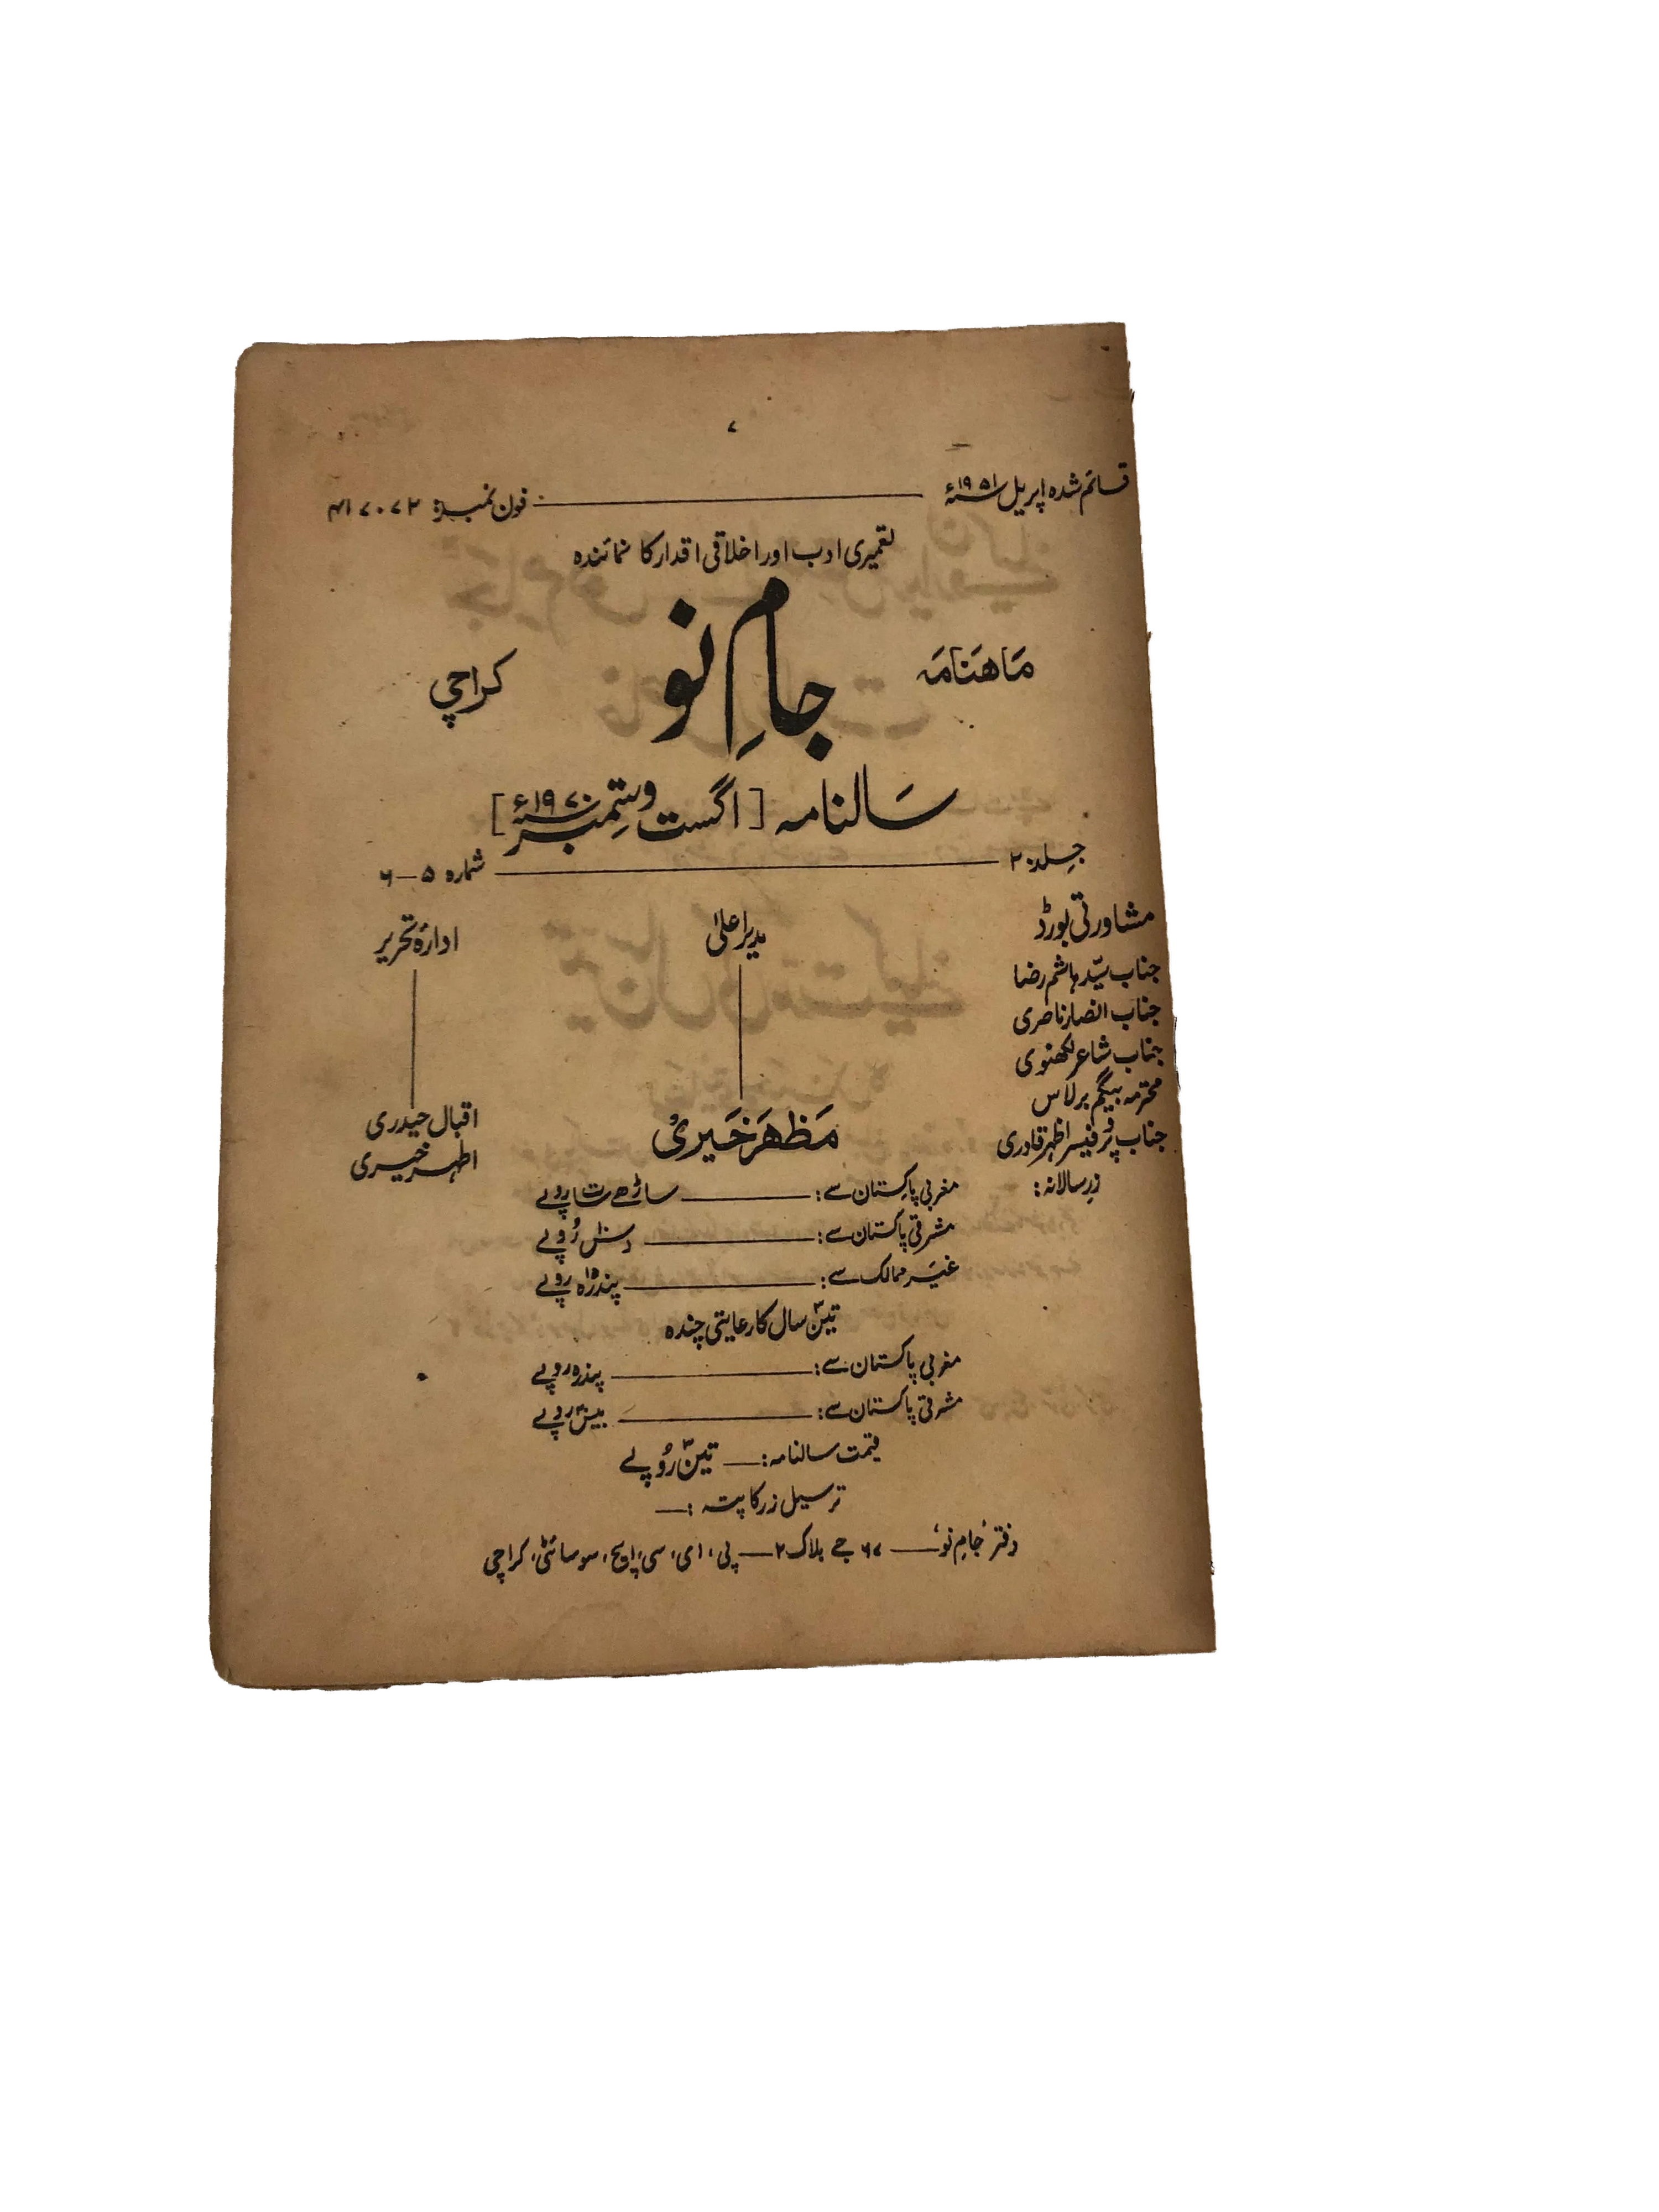 ۷
قائم شدہ اپریل ۱۹۵۱ء ـــــ فون نمبر: ۴۱۷۰۷۲
تعمیری ادب اور اخلاقی اقدار کا نمائندہ
ماهنامہ جامِ نو کراچی
سالنامہ [اگست و ستمبر ۱۹۷۰ء]
جلد: ۲۰ ـــــ شمارہ ۵—۶
مشاورتی بورڈ
جناب سیّد ہاشم رضا
جناب انصار ناصری
جناب شاعر لکھنوی
محترمہ بیگم برلاس
جناب پروفیسر اظہر قادری
مدیرِ اعلیٰ
مَظهَر خَیری
ادارۂ تحریر
اقبال حیدری
اطہر خیری
زرِ سالانہ:
مغربی پاکستان سے: ـــــ ساڑھے سات روپے
مشرقی پاکستان سے: ـــــ دس۱۰ روپے
غیر ممالک سے: ـــــ پندرہ۱۵ روپے
تین۳ سال کا رعایتی چندہ
مغربی پاکستان سے: ـــــ پندرہ روپے
مشرقی پاکستان سے: ـــــ بیس۲۰ روپے
قیمت سالنامہ: ـــــ تین۳ روپے
ترسیل زر کا پتہ :ـــ
دفتر ’جامِ نو‘ ـــــ ۶۷ جے بلاک ۲ ـــــ پی، ای، سی، ایچ، سوسائٹی، کراچی